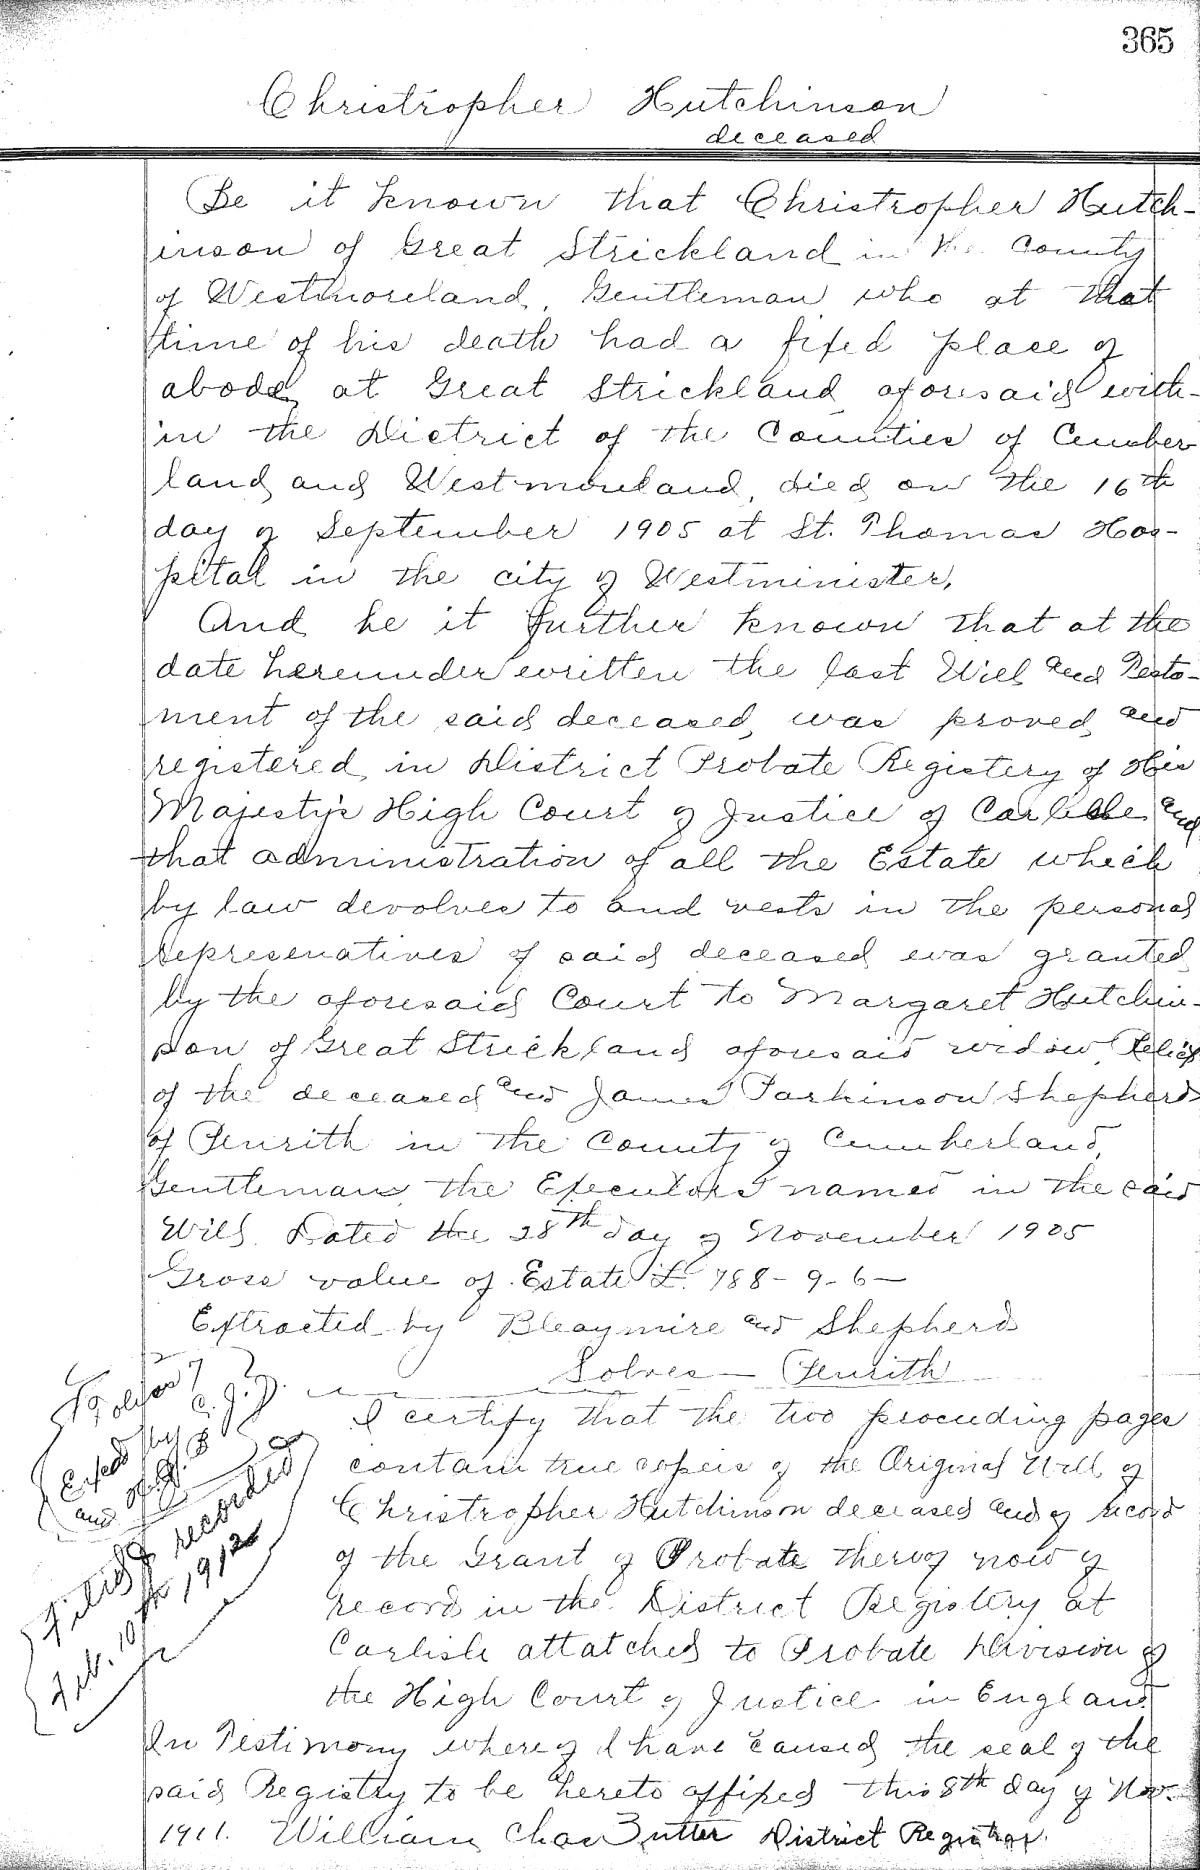 365
Christropher Hutchinson
deceased
Be it known that Christropher Hutch-
inson of Great Strickland in the County
of Westmoreland, Gentleman who at that
time of his death had a fixed place of
abode at Great Strickland aforesaid with-
in the District of the Counties of Cumber
land and Westmoreland, died on the 16th
day of September 1905 at St. Thomas Hos-
pital in the city of Westminister,
And be it further known that at the
date hereunder written the last Will and Testa-
ment of the said deceased, was proved and
registered in District Probate Registery of His
Majesty's High Court of Justice of Carlisle and
that administration of all the Estate which
by law devolves to and vests in the personal
represenatives of said deceased was granted
by the aforesaid Court to Margaret Hutchin-
son of Great Strickland aforesaid widow, Relict
of the deceased and James Parkinson Shepherd
of Penrith in the County of Cumberland,
Gentleman the Executors named in the said
Will. Dated the 28th day of November 1905
Gross value of Estate £ 788-9-6-
Extracted by Bleaymire and Shepherd
Solves- Penrith
I certify that the two proceeding pages
contain true copies of the Original Will of
Christropher Hutchinson deceased and of record
of the Grant of Probate thereof now of
record in the District Registery at
Carlisle attatched to Probate Division of
the High Court of Justice in England
In Testimony whereof I have caused the seal of the
said Registry to be hereto affixed this 8th day of Nov.
1911. William Chas Butter District Registrar.
C.J.D.
Exed by
and
Filed & recorded
Feb. 10th 1912